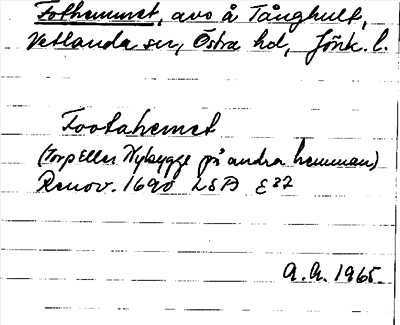 Fothemmet, avs å Tånghult,
Vetlanda sn, Östra hd, Jönk. l.
Footahemet
(Torp Eller Nybygge på andra hemman)
Renov. 1690 LSA E37
A.A. 1965.